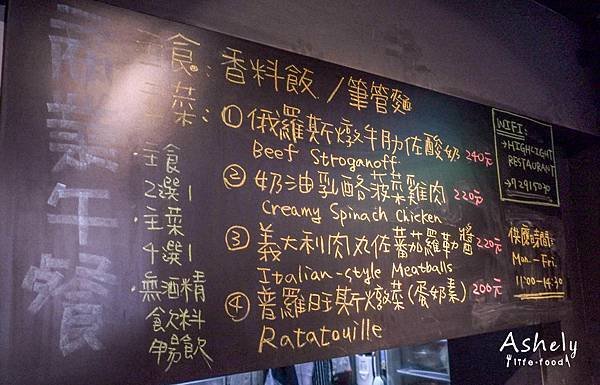 商業午餐
主食：香料飯／筆管麵
主菜：
①俄羅斯燉牛肋佐酸奶 240元
Beef Stroganoff
②奶油乳酪菠菜雞肉 220元
Creamy Spinach Chicken
③義大利肉丸佐蕃茄羅勒醬 220元
Italian-style Meatballs
④普羅旺斯燉菜(蛋奶素) 200元
Ratatouille
·主食
2選1
·主菜
4選1
·無酒精
飲料
暢飲
WIFI:
→HIGHLIGHT
RESTAURANT
→72915030
供應時間:
Mon - Fri
11:00-14:30
Ashely
life·food